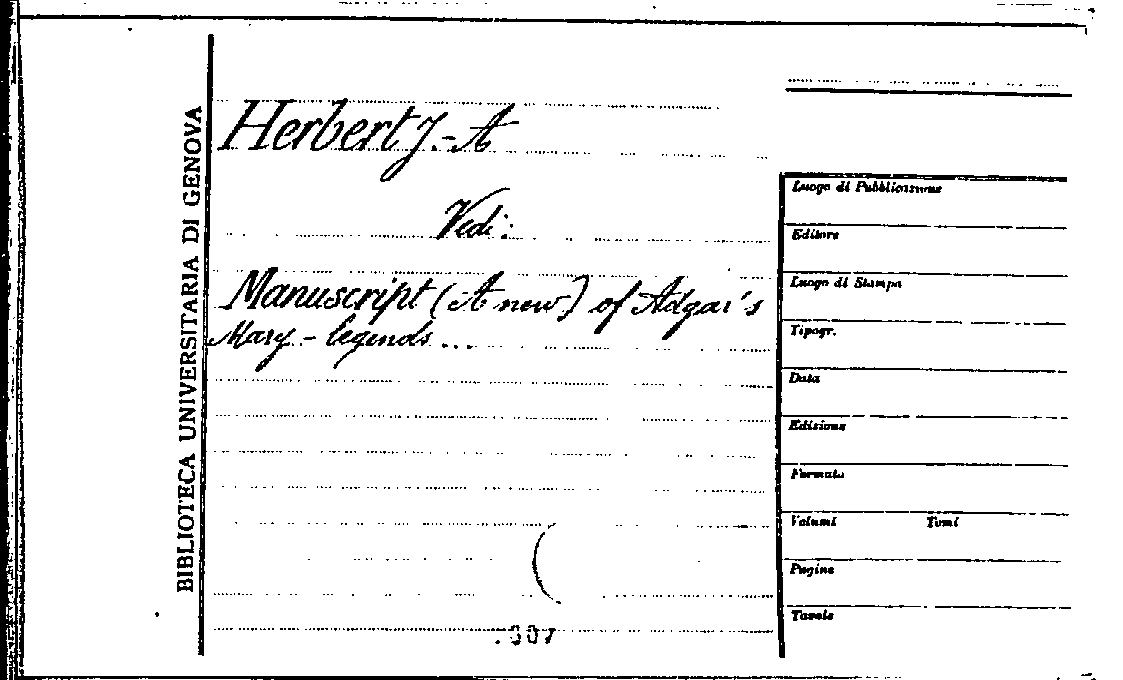 BIBLIOTECA UNIVERSITARIA DI GENOVA
Herbert J.-A
Vedi:
Manuscript (A new) of Adgar's
Mary-legends...
Luogo di Pubblicazione
Editore
Luogo di Stampa
Tipogr.
Data
Edizione
Formato
Volumi Tomi
Pagine
Tavole